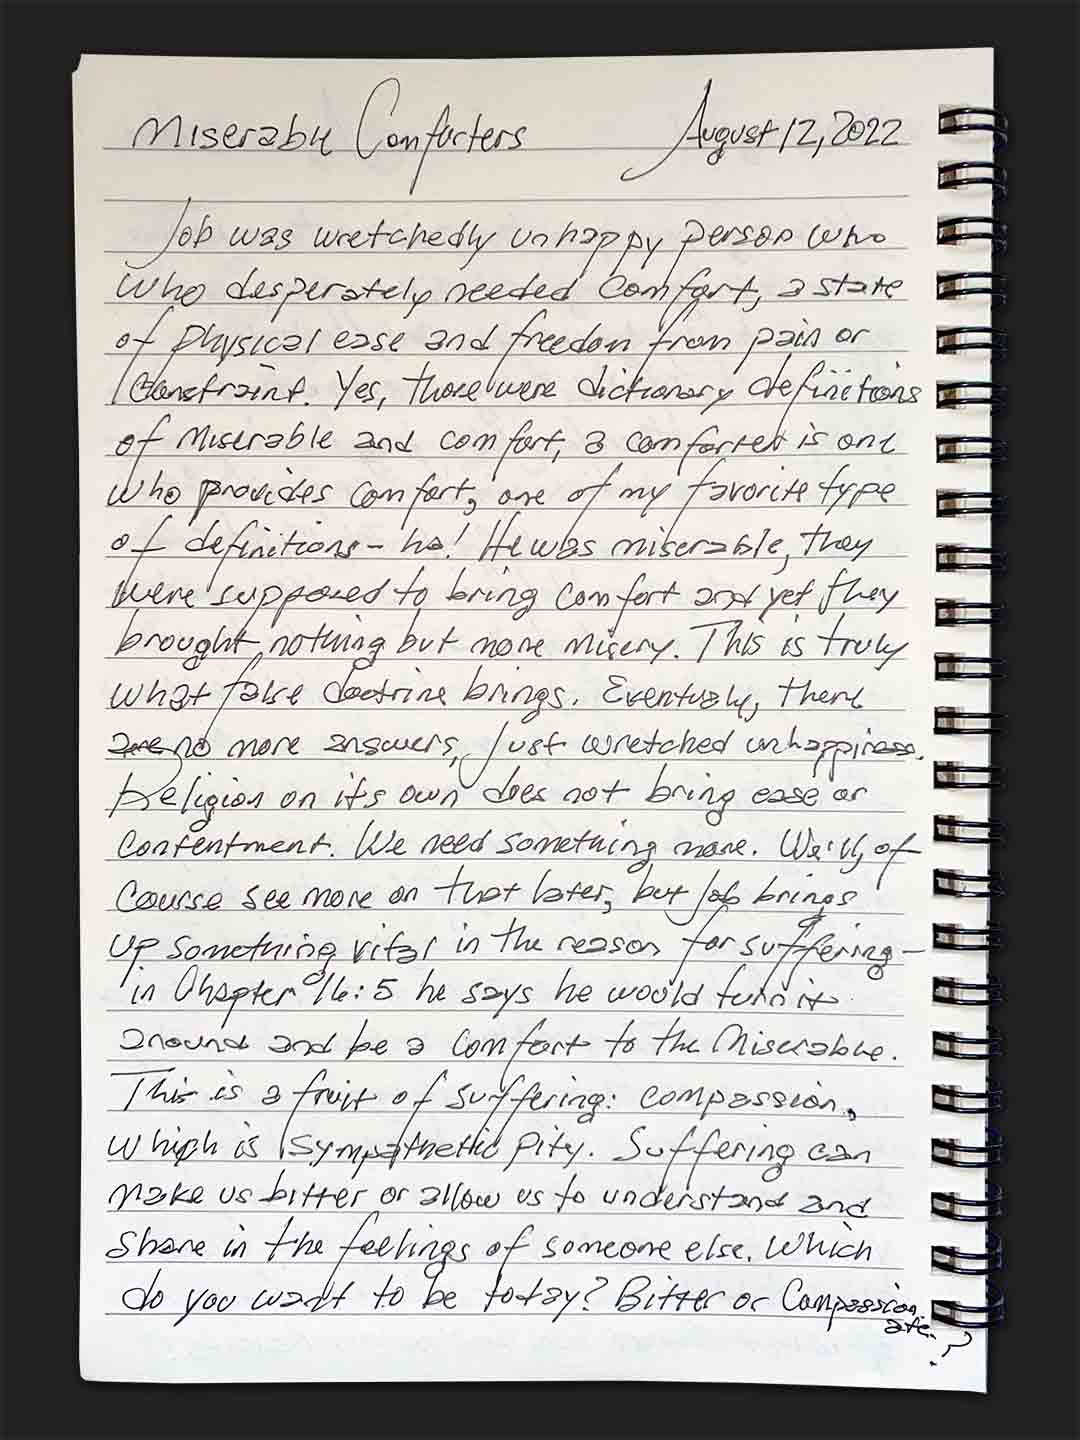 Miserable Comforters August 12, 2022
Job was wretchedly unhappy person who
who desperately needed comfort, a state
of physical ease and freedom from pain or
constraint. Yes, those were dictionary definitions
of miserable and comfort, a comforter is one
who provides comfort, one of my favorite type
of definitions - ha! He was miserable, they
were supposed to bring comfort and yet they
brought nothing but more misery. This is truly
what false doctrine brings. Eventualy, there
are no more answers, just wretched unhappiness.
Religion on its own does not bring ease or
contentment. We need something more. We'll, of
course see more on that later, but Job brings
up something vital in the reason for suffering -
in Chapter 16:5 he says he would turn it
around and be a comfort to the Miserable.
This is a fruit of suffering: compassion,
which is sympathetic pity. Suffering can
make us bitter or allow us to understand and
share in the feelings of someone else. Which
do you want to be today? Bitter or Compassion
ate.?